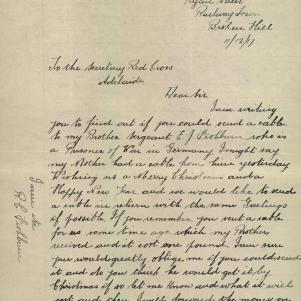 Ryan Street
Railway Town
Broken Hill
11/12/17
To the Secretary Red Cross
Adelaide
Dear Sir
I am writing
you to find out if you could send a cable
to my Brother Sergeant E. J. who is
a Prisoner of War in Germany I might say
my Mother had a cable from him yesterday
Wishing us a Merry Christmas and a
Happy New Year and we would like to send
a cable in return with the same Greetings
if possible. If you remember you sent a cable
for us some time ago which my Brother
received and it cost one pound. I am sure
you would greatly oblige me if you could send
it and do you think he would get it by
Christmas if so let me know and what it will
cost and then I will forward the money on
I am etc